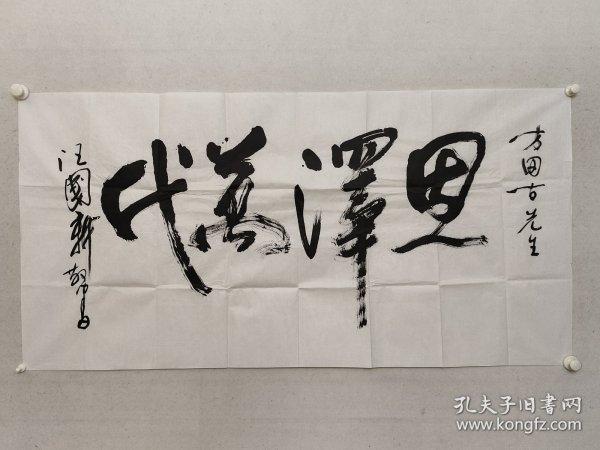 方田古先生
恩澤萬代
汪國新敬書
孔夫子旧書网
www.kongfz.com